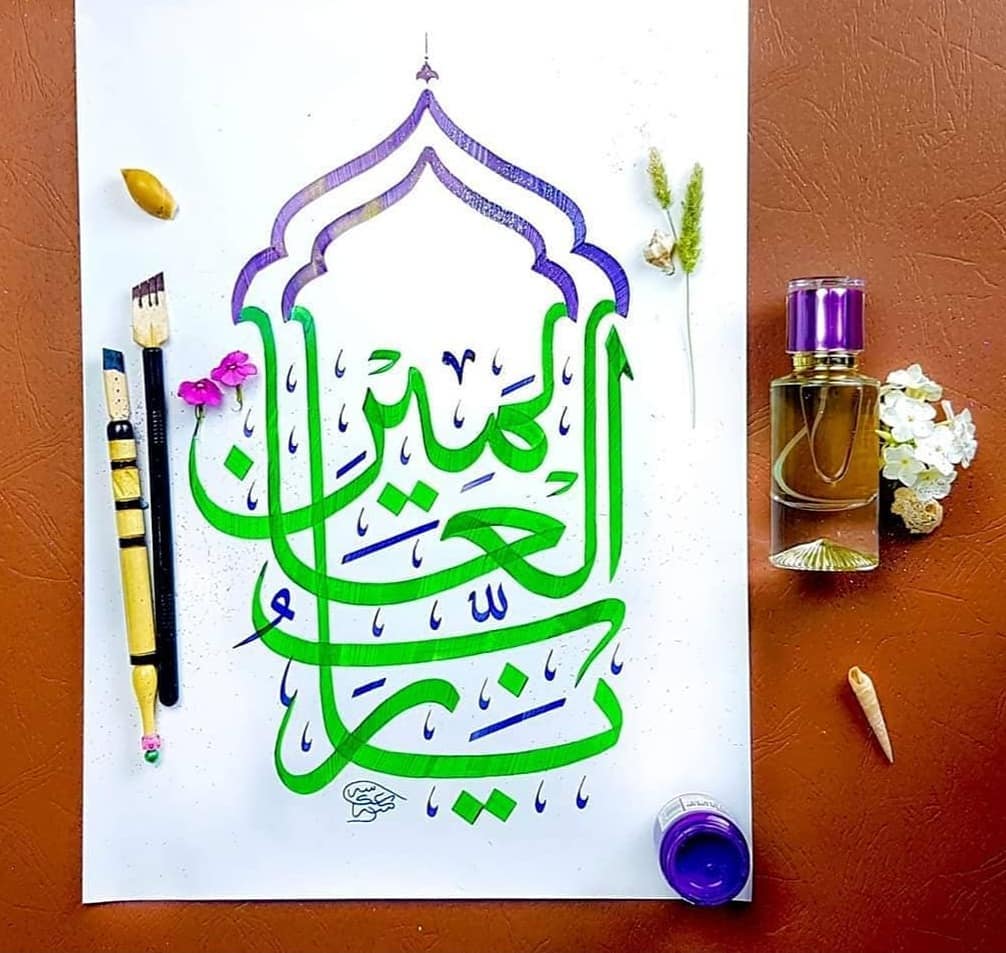 يا رب العالمين